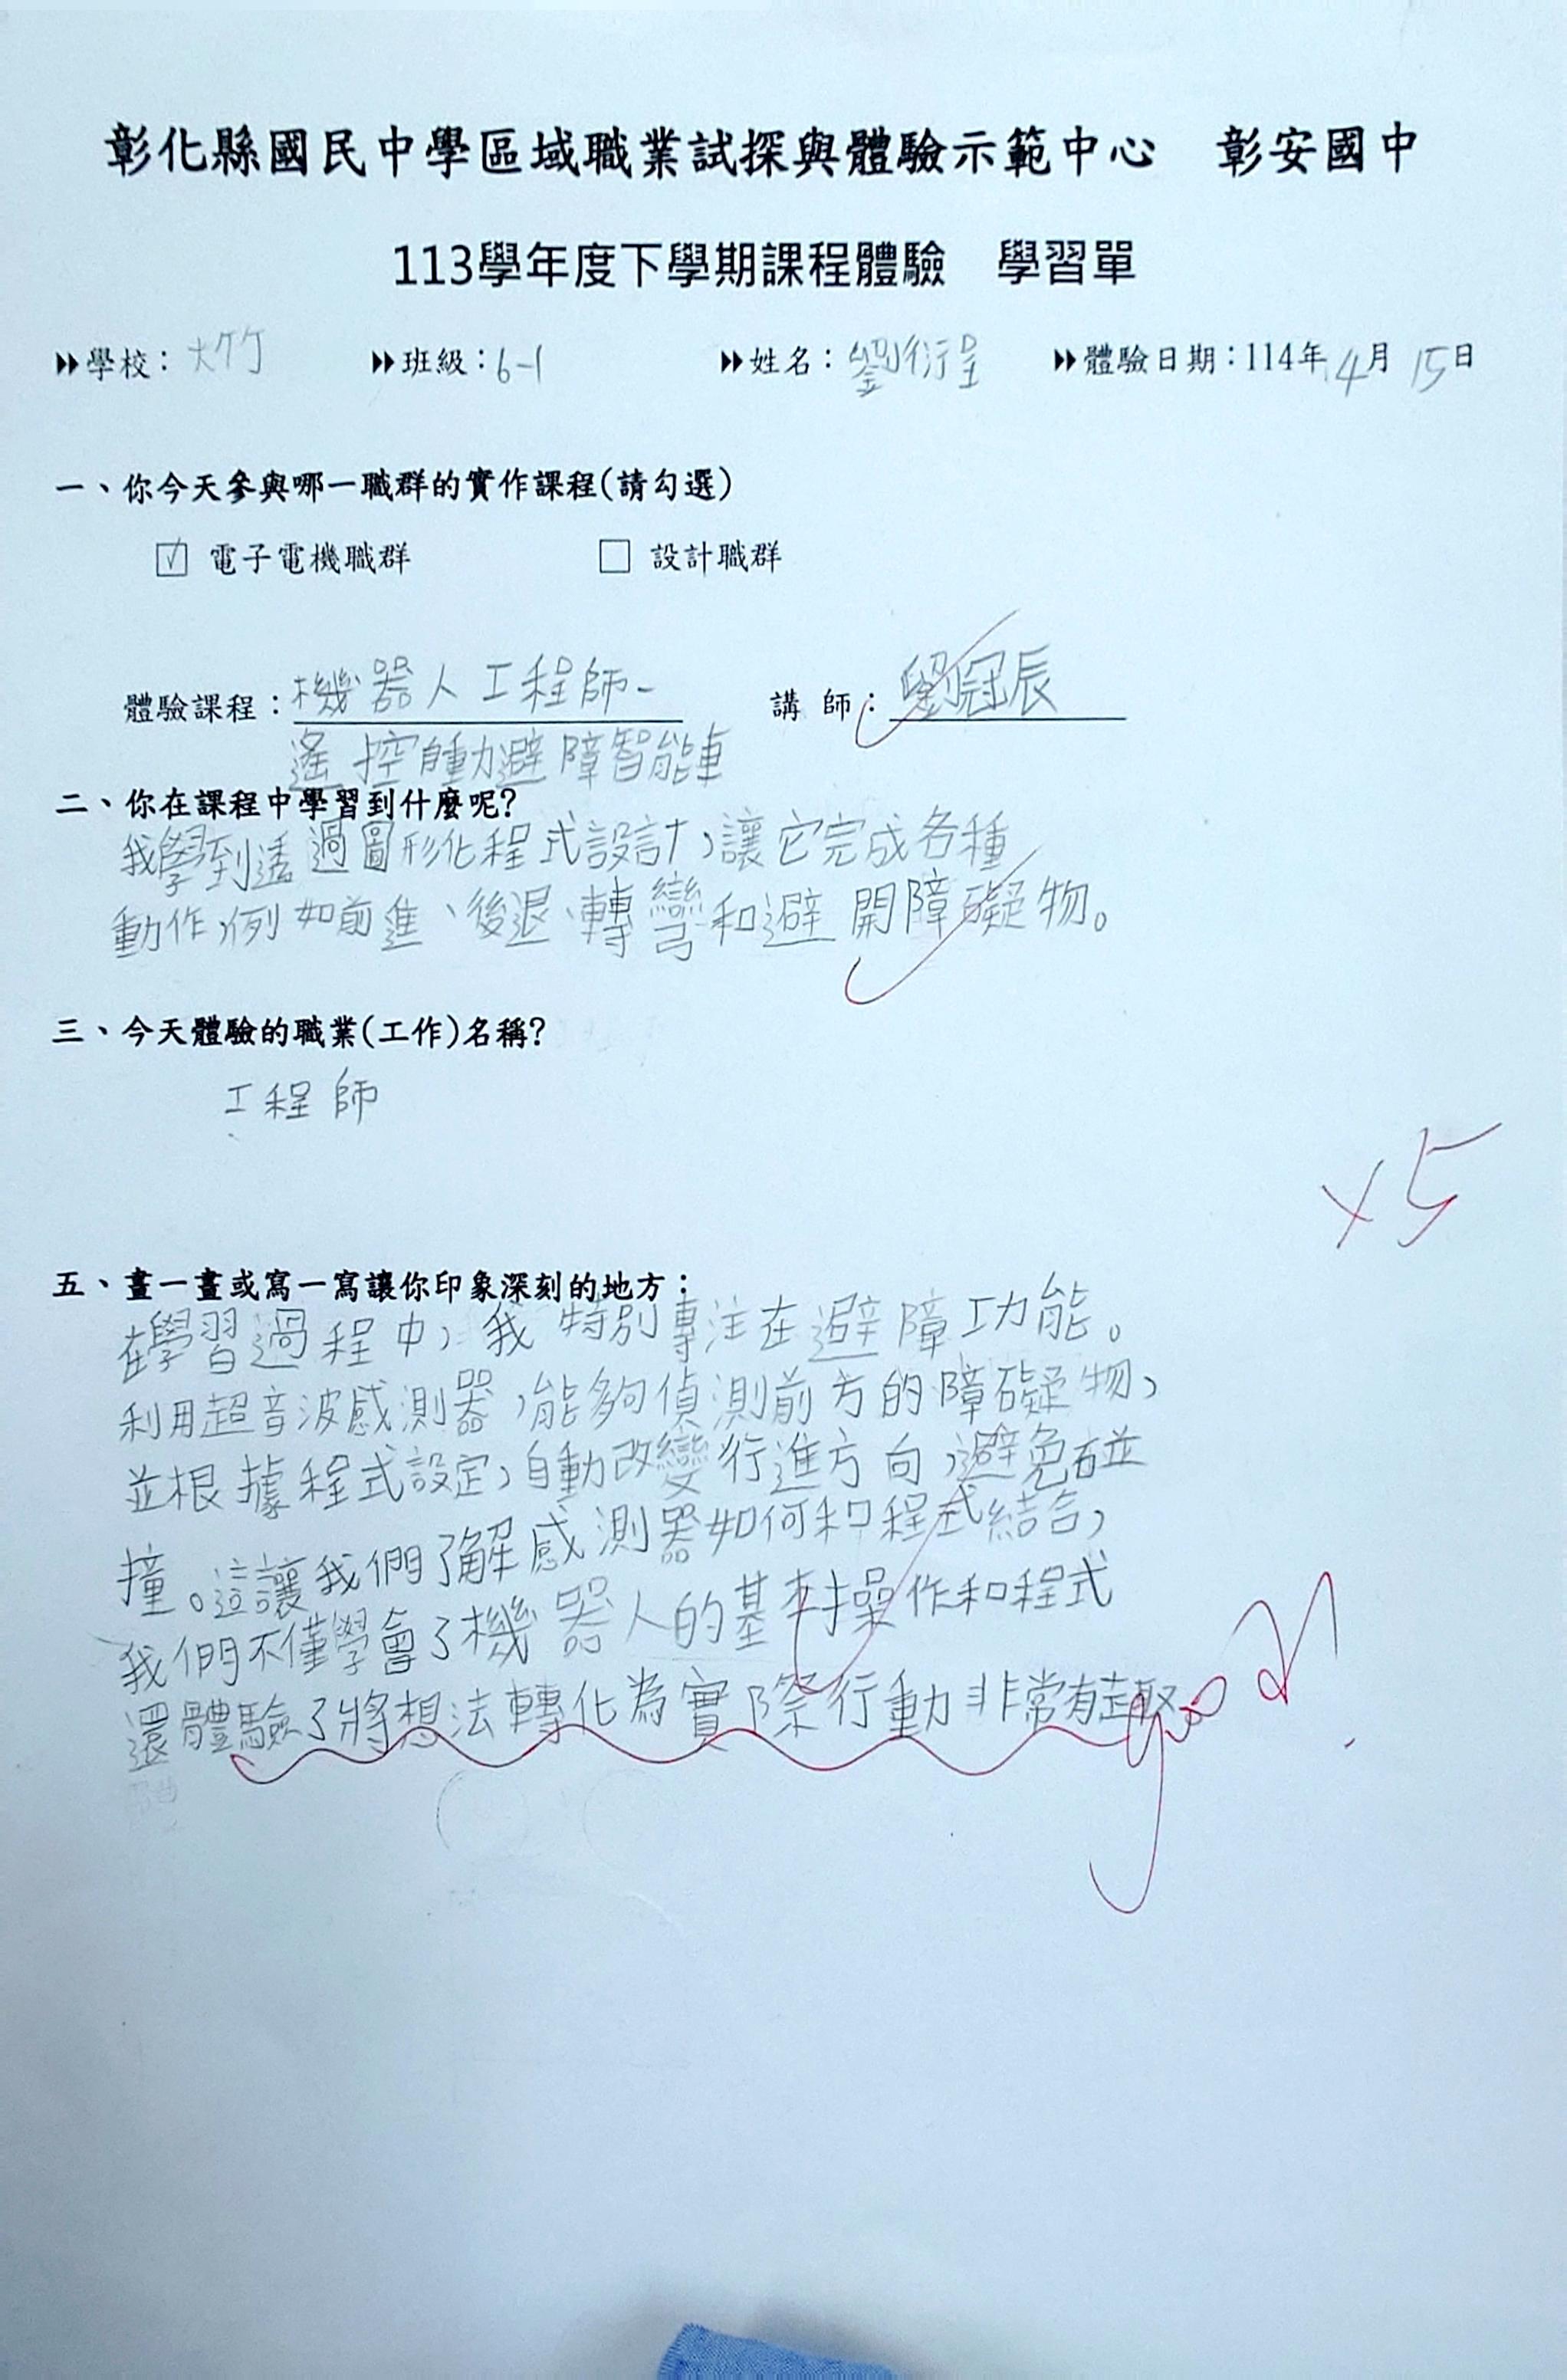 彰化縣國民中學區域職業試探與體驗示範中心　彰安國中
113學年度下學期課程體驗　學習單
學校：大竹　班級：6-1　姓名：劉衍呈　體驗日期：114年4月15日
一、你今天參與哪一職群的實作課程(請勾選)
☑ 電子電機職群　☐ 設計職群
體驗課程：機器人工程師-　講 師：劉冠辰
遙控自動避障智能車
二、你在課程中學習到什麼呢?
我學到透過圖形化程式設計，讓它完成各種
動作，例如前進、後退、轉彎和避開障礙物。
三、今天體驗的職業(工作)名稱?
工程師
×5
五、畫一畫或寫一寫讓你印象深刻的地方：
在學習過程中，我特別專注在避障功能。
利用超音波感測器，能夠偵測前方的障礙物，
並根據程式設定，自動改變行進方向，避免碰
撞。這讓我們了解感測器如何和程式結合，
我們不僅學會了機器人的基本操作和程式
還體驗了將想法轉化為實際行動非常有趣
good!